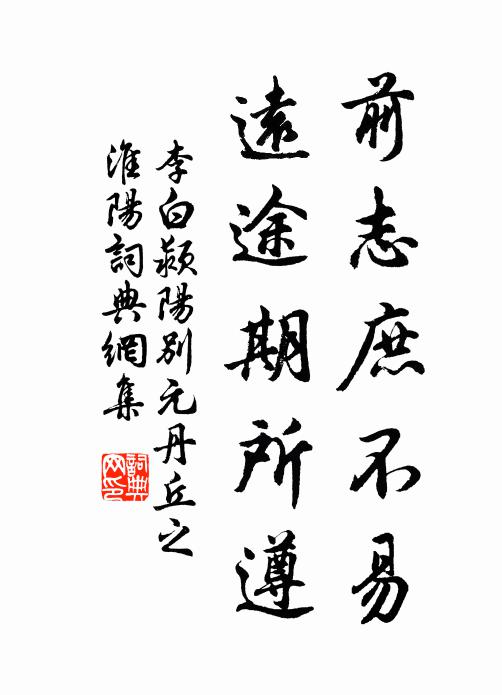 前志庶不易
遠途期所遵
李白潁陽別元丹丘之
淮陽詞典網集
詞典
网印